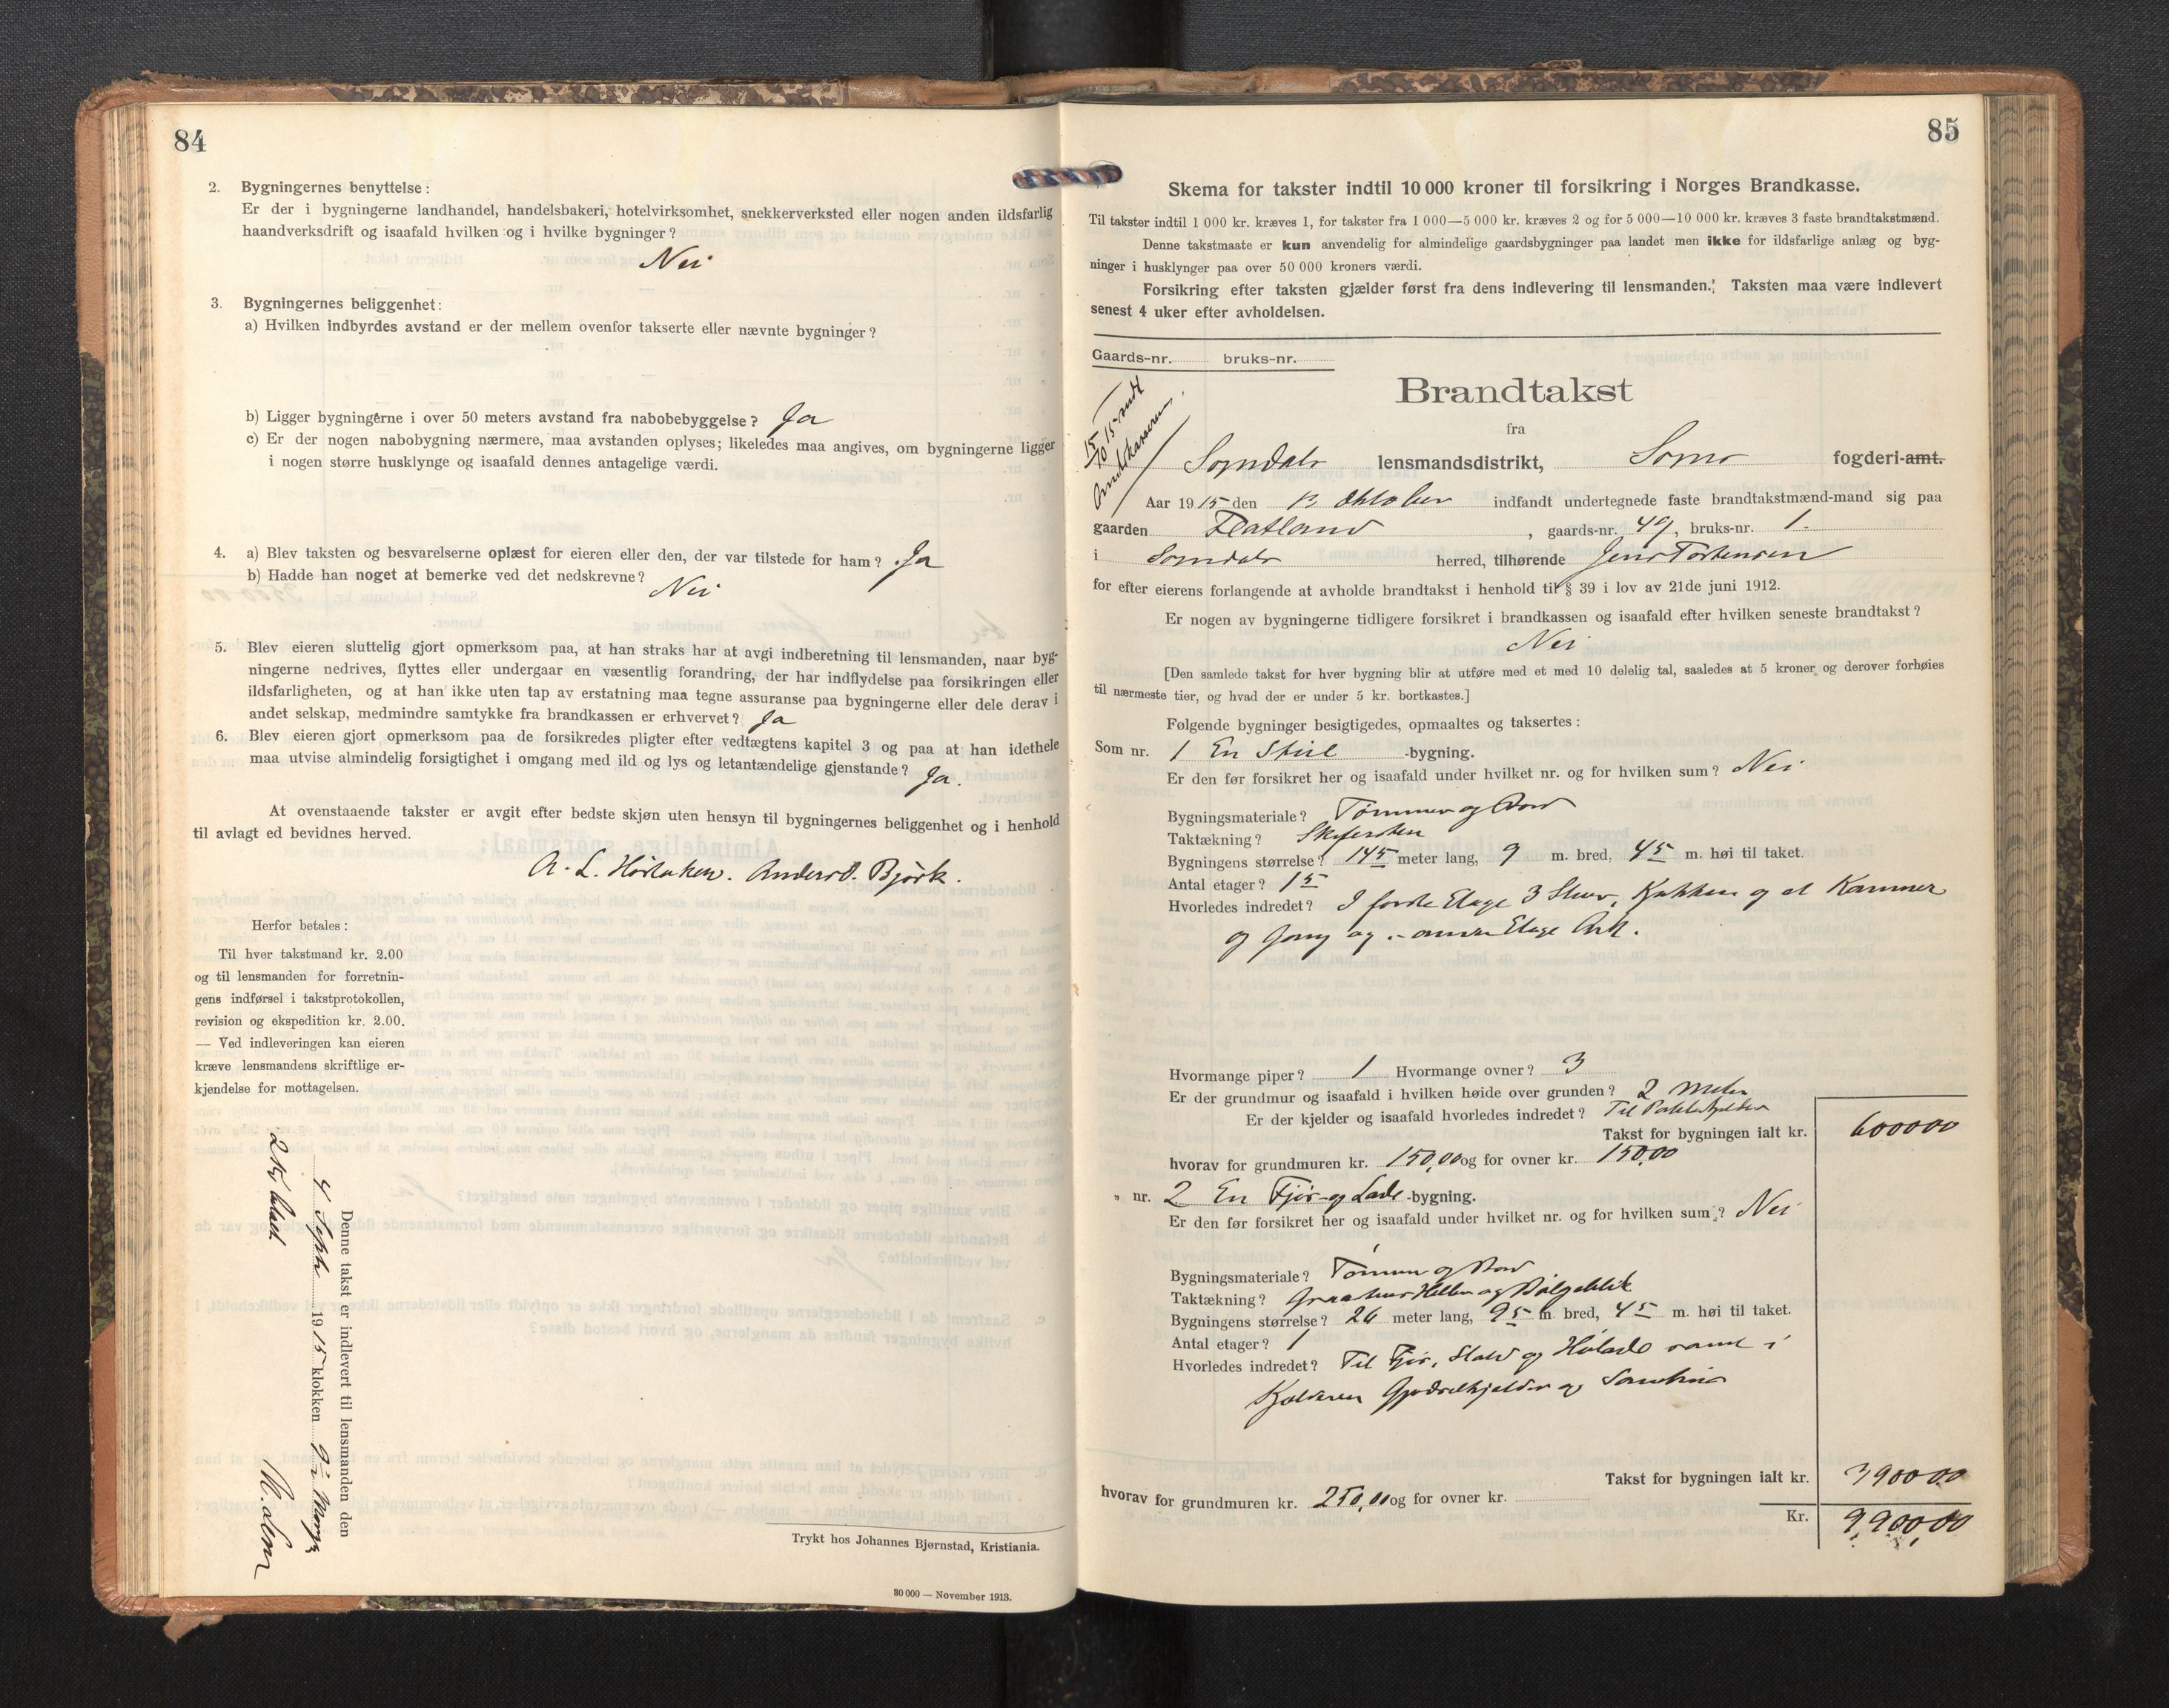 84
2. Bygningernes benyttelse:
Er der i bygningerne landhandel, handelsbakeri, hotelvirksomhet, snekkerverksted eller nogen anden ildsfarlig
haandverksdrift og isaafald hvilken og i hvilke bygninger?
Nei
3. Bygningernes beliggenhet:
a) Hvilken indbyrdes avstand er der mellem ovenfor takserte eller nævnte bygninger?
b) Ligger bygningerne i over 50 meters avstand fra nabobebyggelse? Ja
c) Er der nogen nabobygning nærmere, maa avstanden oplyses; likeledes maa angives, om bygningerne ligger
i nogen større husklynge og isaafald dennes antagelige værdi.
4. a) Blev taksten og besvarelserne oplæst for eieren eller den, der var tilstede for ham? Ja
b) Hadde han noget at bemerke ved det nedskrevne? Nei
5. Blev eieren sluttelig gjort opmerksom paa, at han straks har at avgi indberetning til lensmanden, naar byg-
ningerne nedrives, flyttes eller undergaar en væsentlig forandring, der har indflydelse paa forsikringen eller
ildsfarligheten, og at han ikke uten tap av erstatning maa tegne assuranse paa bygningerne eller dele derav i
andet selskap, medmindre samtykke fra brandkassen er erhvervet? Ja
6. Blev eieren gjort opmerksom paa de forsikredes pligter efter vedtægtens kapitel 3 og paa at han idethele
maa utvise almindelig forsigtighet i omgang med ild og lys og letantændelige gjenstande? Ja.
At ovenstaaende takster er avgit efter bedste skjøn uten hensyn til bygningernes beliggenhet og i henhold
til avlagt ed bevidnes herved.
A. L. Anders O. Bjørk.
Herfor betales:
Til hver takstmand kr. 2.00
og til lensmanden for forretnin-
gens indførsel i takstprotokollen,
revision og ekspedition kr. 2.00.
— Ved indleveringen kan eieren
kræve lensmandens skriftlige er-
kjendelse for mottagelsen.
Denne takst er indlevert til lensmanden den
4 Septr 1915 klokken 9½
2 Kr betalt
Trykt hos Johannes Bjørnstad, Kristiania.
30 000 — November 1913.
85
Skema for takster indtil 10 000 kroner til forsikring i Norges Brandkasse.
Til takster indtil 1 000 kr. kræves 1, for takster fra 1 000—5 000 kr. kræves 2 og for 5 000—10 000 kr. kræves 3 faste brandtakstmænd.
Denne takstmaate er kun anvendelig for almindelige gaardsbygninger paa landet men ikke for ildsfarlige anlæg og byg-
ninger i husklynger paa over 50 000 kroners værdi.
Forsikring efter taksten gjælder først fra dens indlevering til lensmanden. Taksten maa være indlevert
senest 4 uker efter avholdelsen.
Gaards-nr. bruks-nr.
15/10 15 sendt
Brandtakst
fra
Sogndals lensmandsdistrikt, Sogns fogderi-amt.
Aar 1915 den 12 Oktober indfandt undertegnede faste brandtakstmænd-mand sig paa
gaarden Flatland, gaards-nr. 49, bruks-nr. 1.
i Sogndals herred, tilhørende Jens Torstensen
for efter eierens forlangende at avholde brandtakst i henhold til § 39 i lov av 21de juni 1912.
Er nogen av bygningerne tidligere forsikret i brandkassen og isaafald efter hvilken seneste brandtakst?
Nei
[Den samlede takst for hver bygning blir at utføre med et med 10 delelig tal, saaledes at 5 kroner og derover forhøies
til nærmeste tier, og hvad der er under 5 kr. bortkastes.]
Følgende bygninger besigtigedes, opmaaltes og taksertes:
Som nr. 1 En -bygning.
Er den før forsikret her og isaafald under hvilket nr. og for hvilken sum? Nei
Bygningsmateriale? Tømmer og Bord
Taktækning? Skifersten
Bygningens størrelse? 14 5 meter lang, 9 m. bred, 4 5 m. høi til taket.
Antal etager? 1 5
Hvorledes indredet? I første Etage 3 Stuer, Kjøkken og et Kammer
og Gang og i anden Etage Ark.
Hvormange piper? 1 Hvormange ovner? 3
Er der grundmur og isaafald i hvilken høide over grunden? 2 Meter
Er der kjelder og isaafald hvorledes indredet? Til
Takst for bygningen ialt kr. 6000 00
hvorav for grundmuren kr. 150,00 og for ovner kr. 150,00
" nr. 2 En Fjøs- og Lade -bygning.
Er den før forsikret her og isaafald under hvilket nr. og for hvilken sum? Nei
Bygningsmateriale? Tømmer og Bord
Taktækning? og Bølgeblik
Bygningens størrelse? 26 meter lang, 9 5 m. bred, 4 5 m. høi til taket.
Antal etager? 1
Hvorledes indredet? Til Fjøs, Stald og Hølade samt i
Kjælderen Gjødselkjælder og
Takst for bygningen ialt kr. 3900 00
hvorav for grundmuren kr. 250,00 og for ovner kr.
Kr. 9,900,00